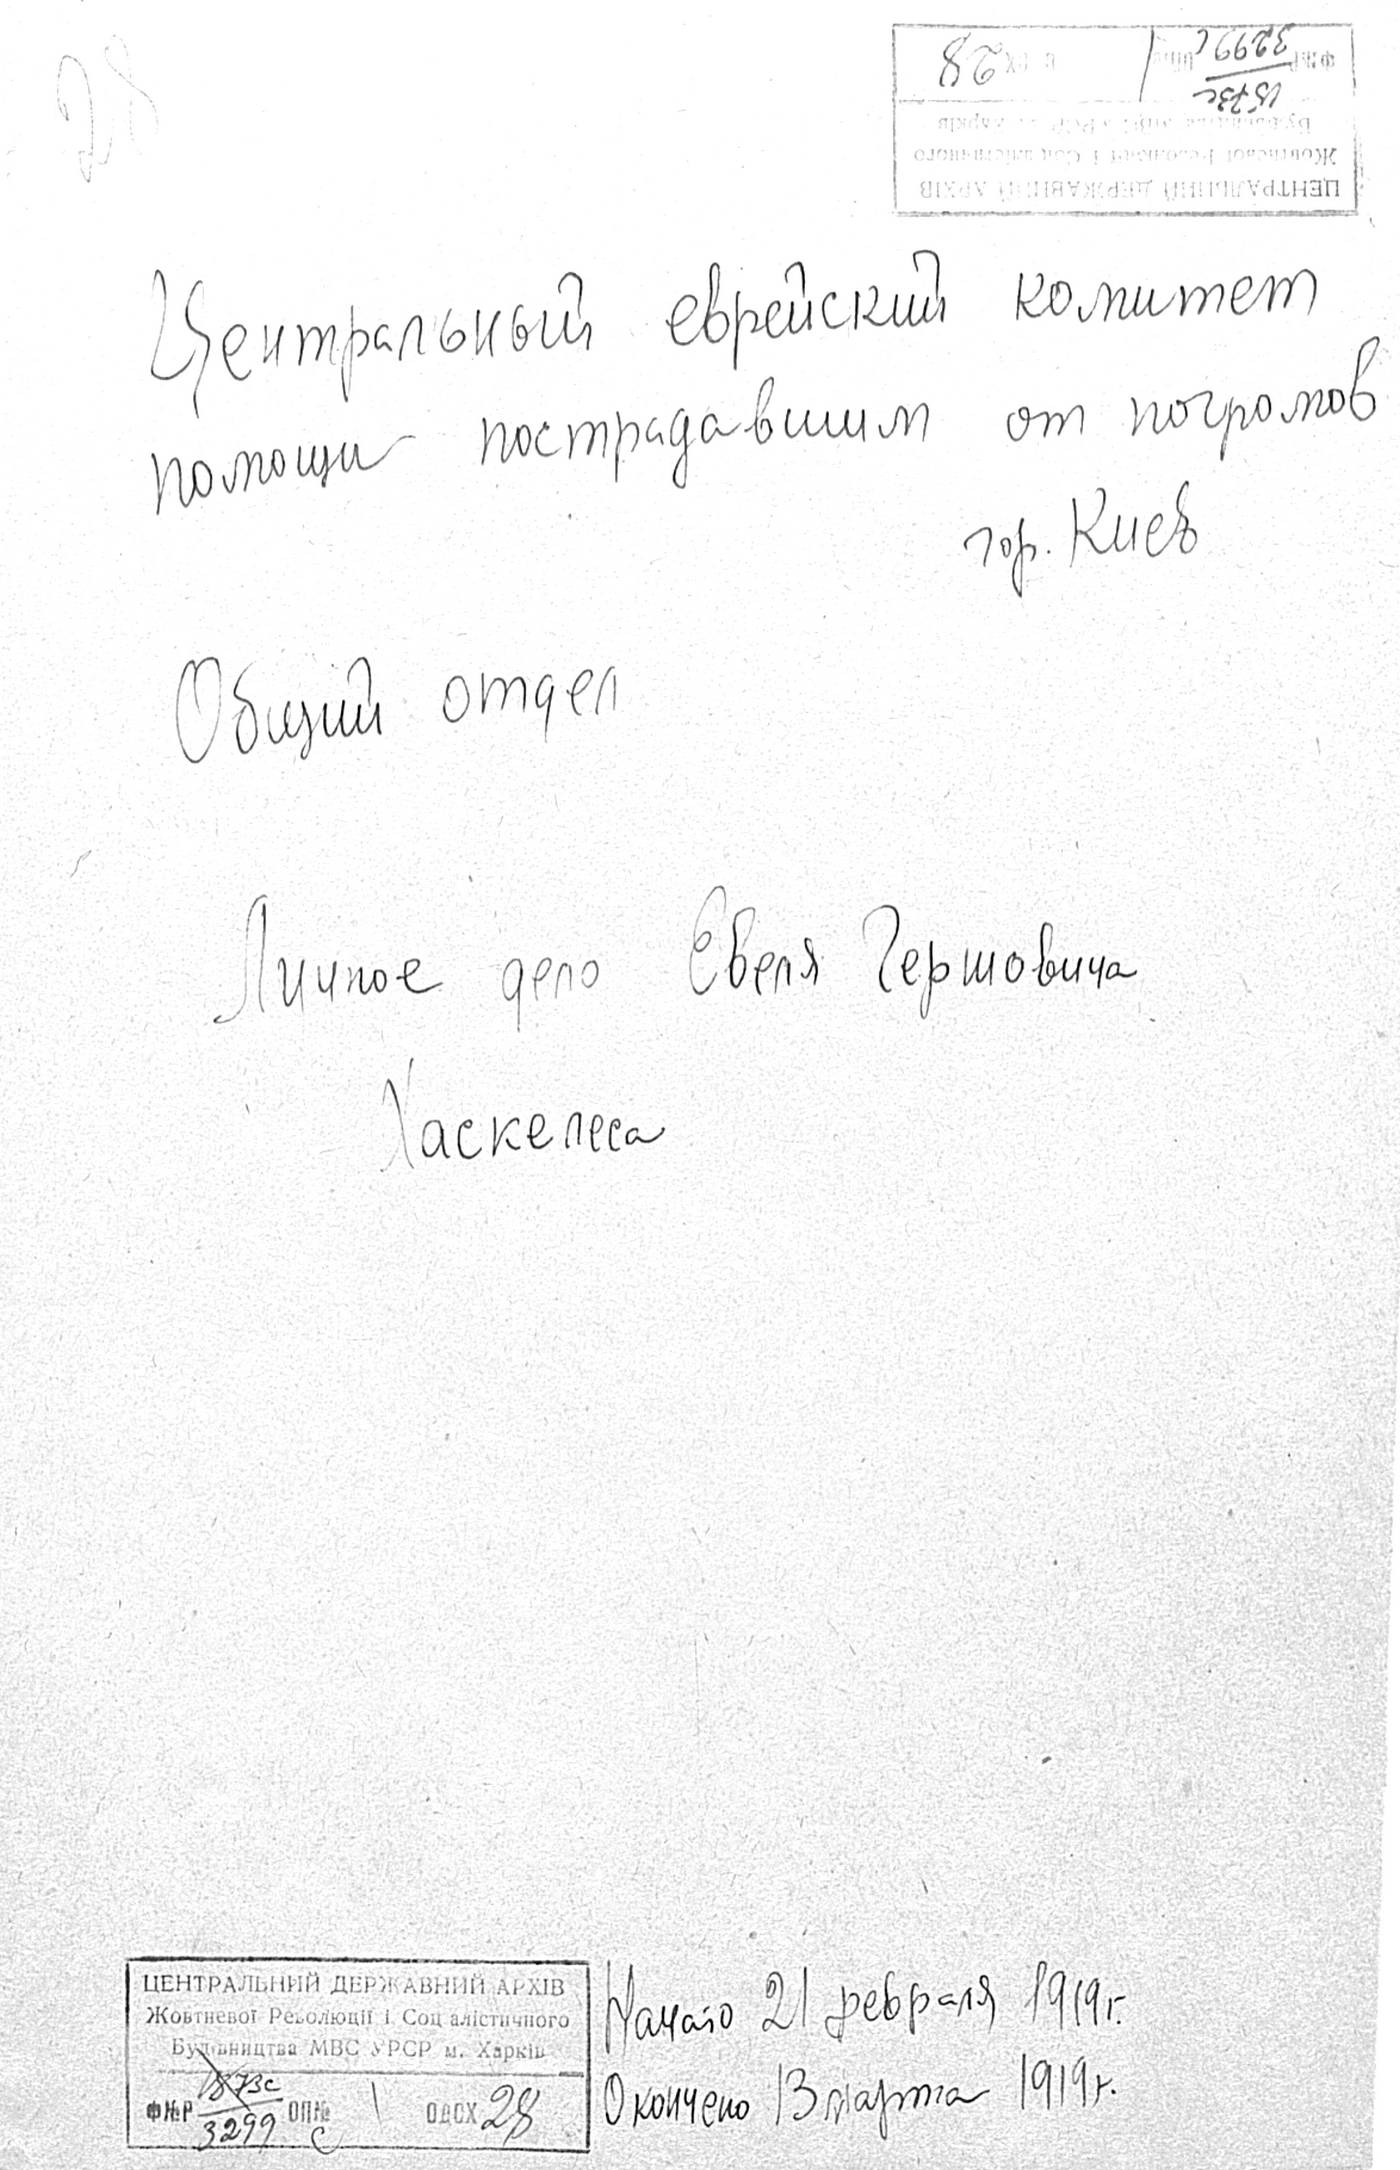 28
ЦЕНТРАЛЬНИЙ ДЕРЖАВНИЙ АРХІВ
Жовтневої Революції і Соціалістичного
Будівництва УРСР м. Харків
Ф№Р 1573с 3299с ОП№ 1 ОДСХ 28
Центральный еврейский комитет
помощи пострадавшим от погромов
гор. Киев
Общий отдел
Личное дело Евеля Гершовича
Хаскелеса
ЦЕНТРАЛЬНИЙ ДЕРЖАВНИЙ АРХІВ
Жовтневої Революції і Соціалістичного
Будівництва МВС УРСР м. Харків
Ф№Р 1573с 3299с ОП№ 1 ОДСХ 28
Начато 21 февраля 1919 г.
Окончено 13 марта 1919 г.